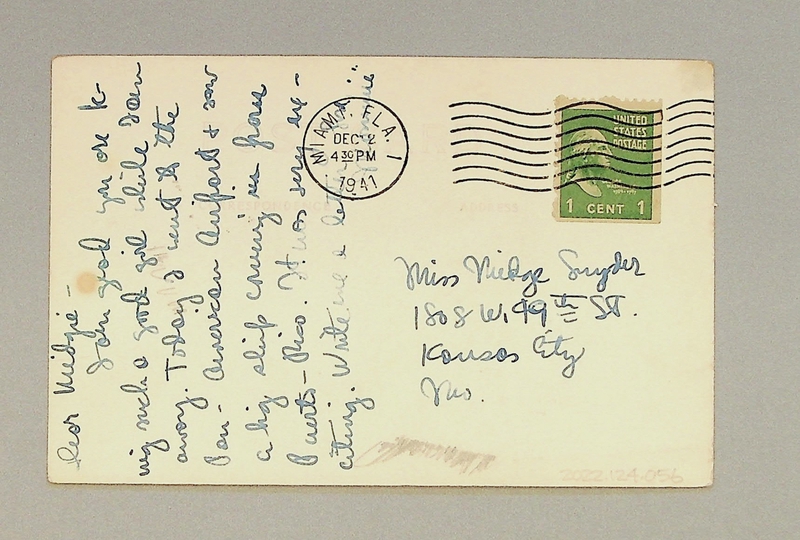 Dear Midgie –
I am glad you are be-
ing such a good girl while I am
away. Today I went to the
Pan-American Airport & saw
a big ship coming in from
Puerto-Rico. It was very ex-
citing. Write me a letter.
MIAMI, FLA.
DEC 2
4 30 PM
1941
1
UNITED
STATES
POSTAGE
1 CENT 1
Miss Midge Snyder
1808 W. 49th St.
Kansas City
Mo.
2022.124.056